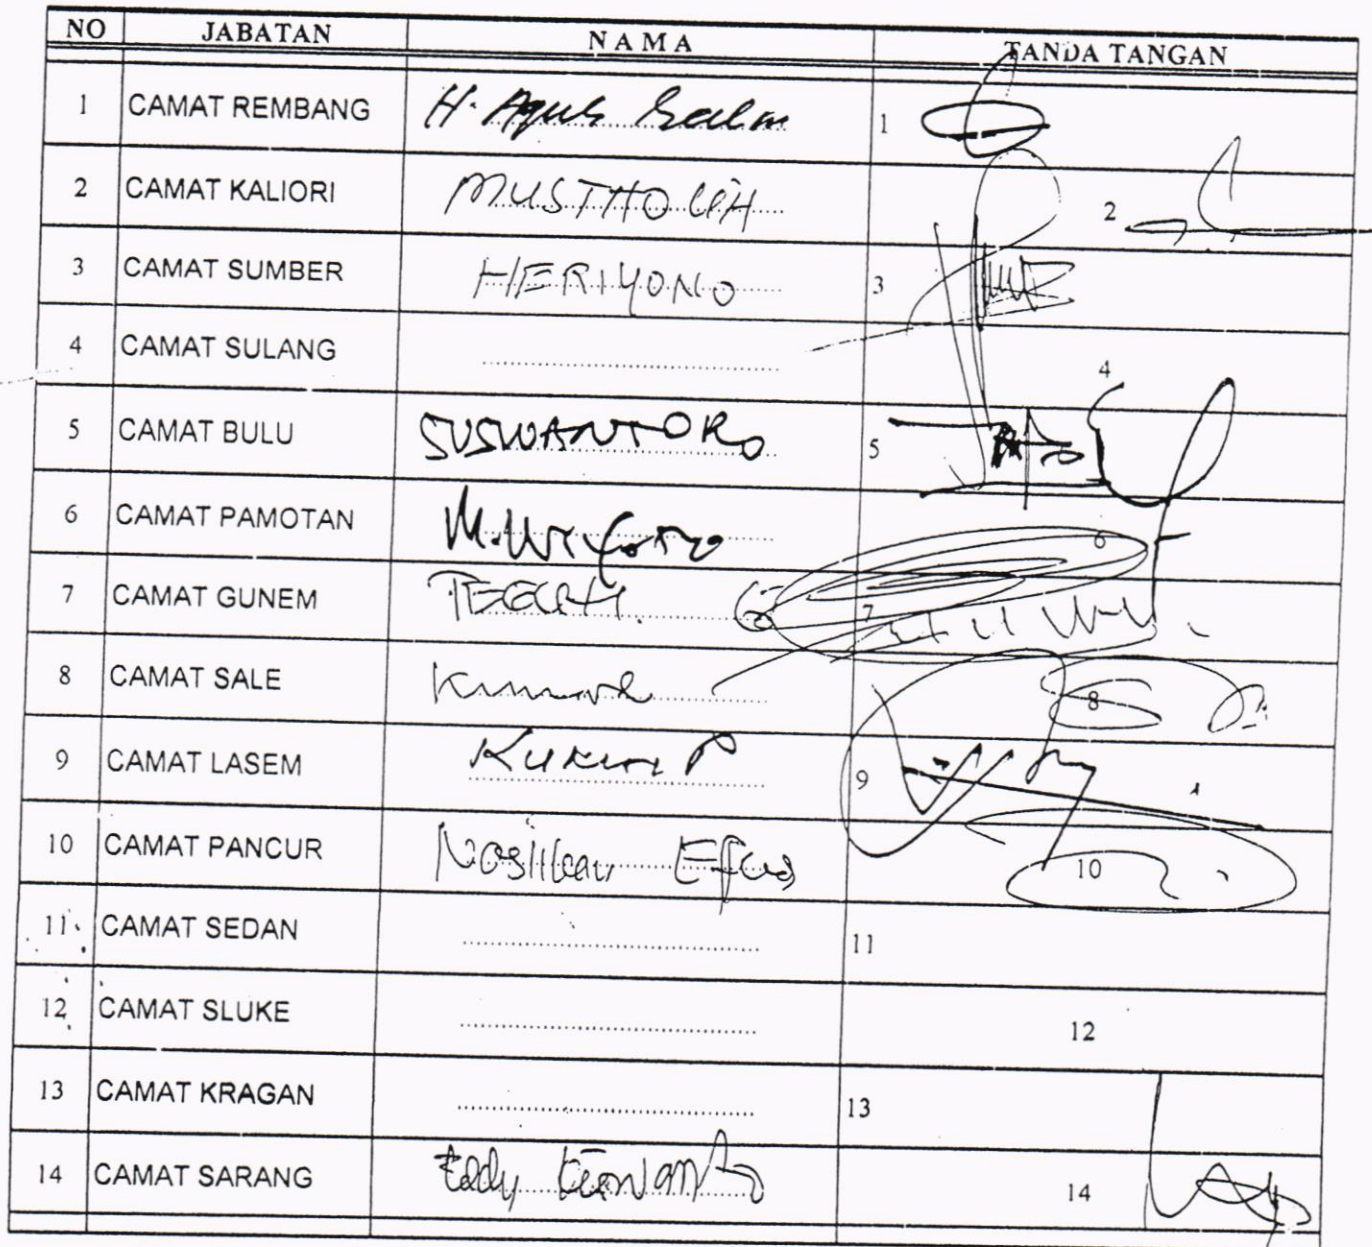 NO JABATAN N A M A TANDA TANGAN
1 CAMAT REMBANG H. Agus Salim 1
2 CAMAT KALIORI MUSTHOLIH 2
3 CAMAT SUMBER HERIYONO 3
4 CAMAT SULANG .......... 4
5 CAMAT BULU SUSWANTORO 5
6 CAMAT PAMOTAN 6
7 CAMAT GUNEM TEGUH. 7
8 CAMAT SALE 8
9 CAMAT LASEM 9
10 CAMAT PANCUR 10
11 CAMAT SEDAN .......... 11
12 CAMAT SLUKE .......... 12
13 CAMAT KRAGAN .......... 13
14 CAMAT SARANG 14